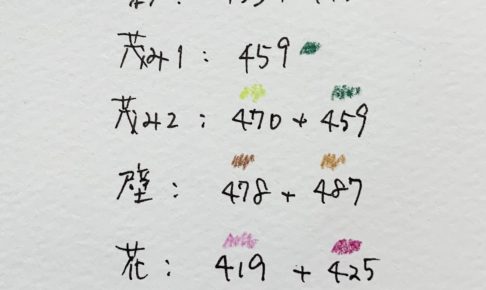 茂み1: 459
茂み2: 470 + 459
壁: 478 + 487
花: 419 + 425